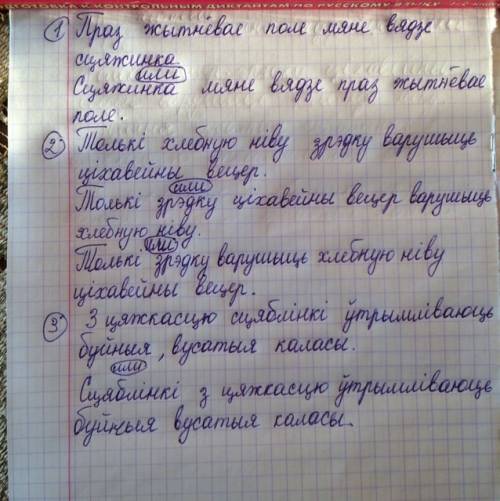 ПОДГОТОВКА К КОНТРОЛЬНЫМ ДИКТАНТАМ ПО РУССКОМУ ЯЗЫКУ
1 Праз жытнёвае поле мяне вядзе
сцяжинка
или
Сцяжинка мяне вядзе праз жытнёвае
поле.
2 Толькі хлебную ніву зрэдку варушыць
ціхавейны вецер.
или
Толькі зрэдку ціхавейны вецер варушыць
хлебную ніву.
или
Толькі зрэдку варушыць хлебную ніву
ціхавейны вецер.
3 З цяжкасцю сцяблінкі ўтрымліваюць
буйныя, вусатыя каласы.
или
Сцяблінкі з цяжкасцю ўтрымліваюць
буйныя вусатыя каласы.